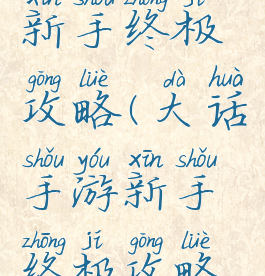 xīn shǒu zhōng jí
新手终极
gōng lüè dà huà
攻略(大话
shǒu yóu xīn shǒu
手游新手
zhōng jí gōng lüè
终极攻略